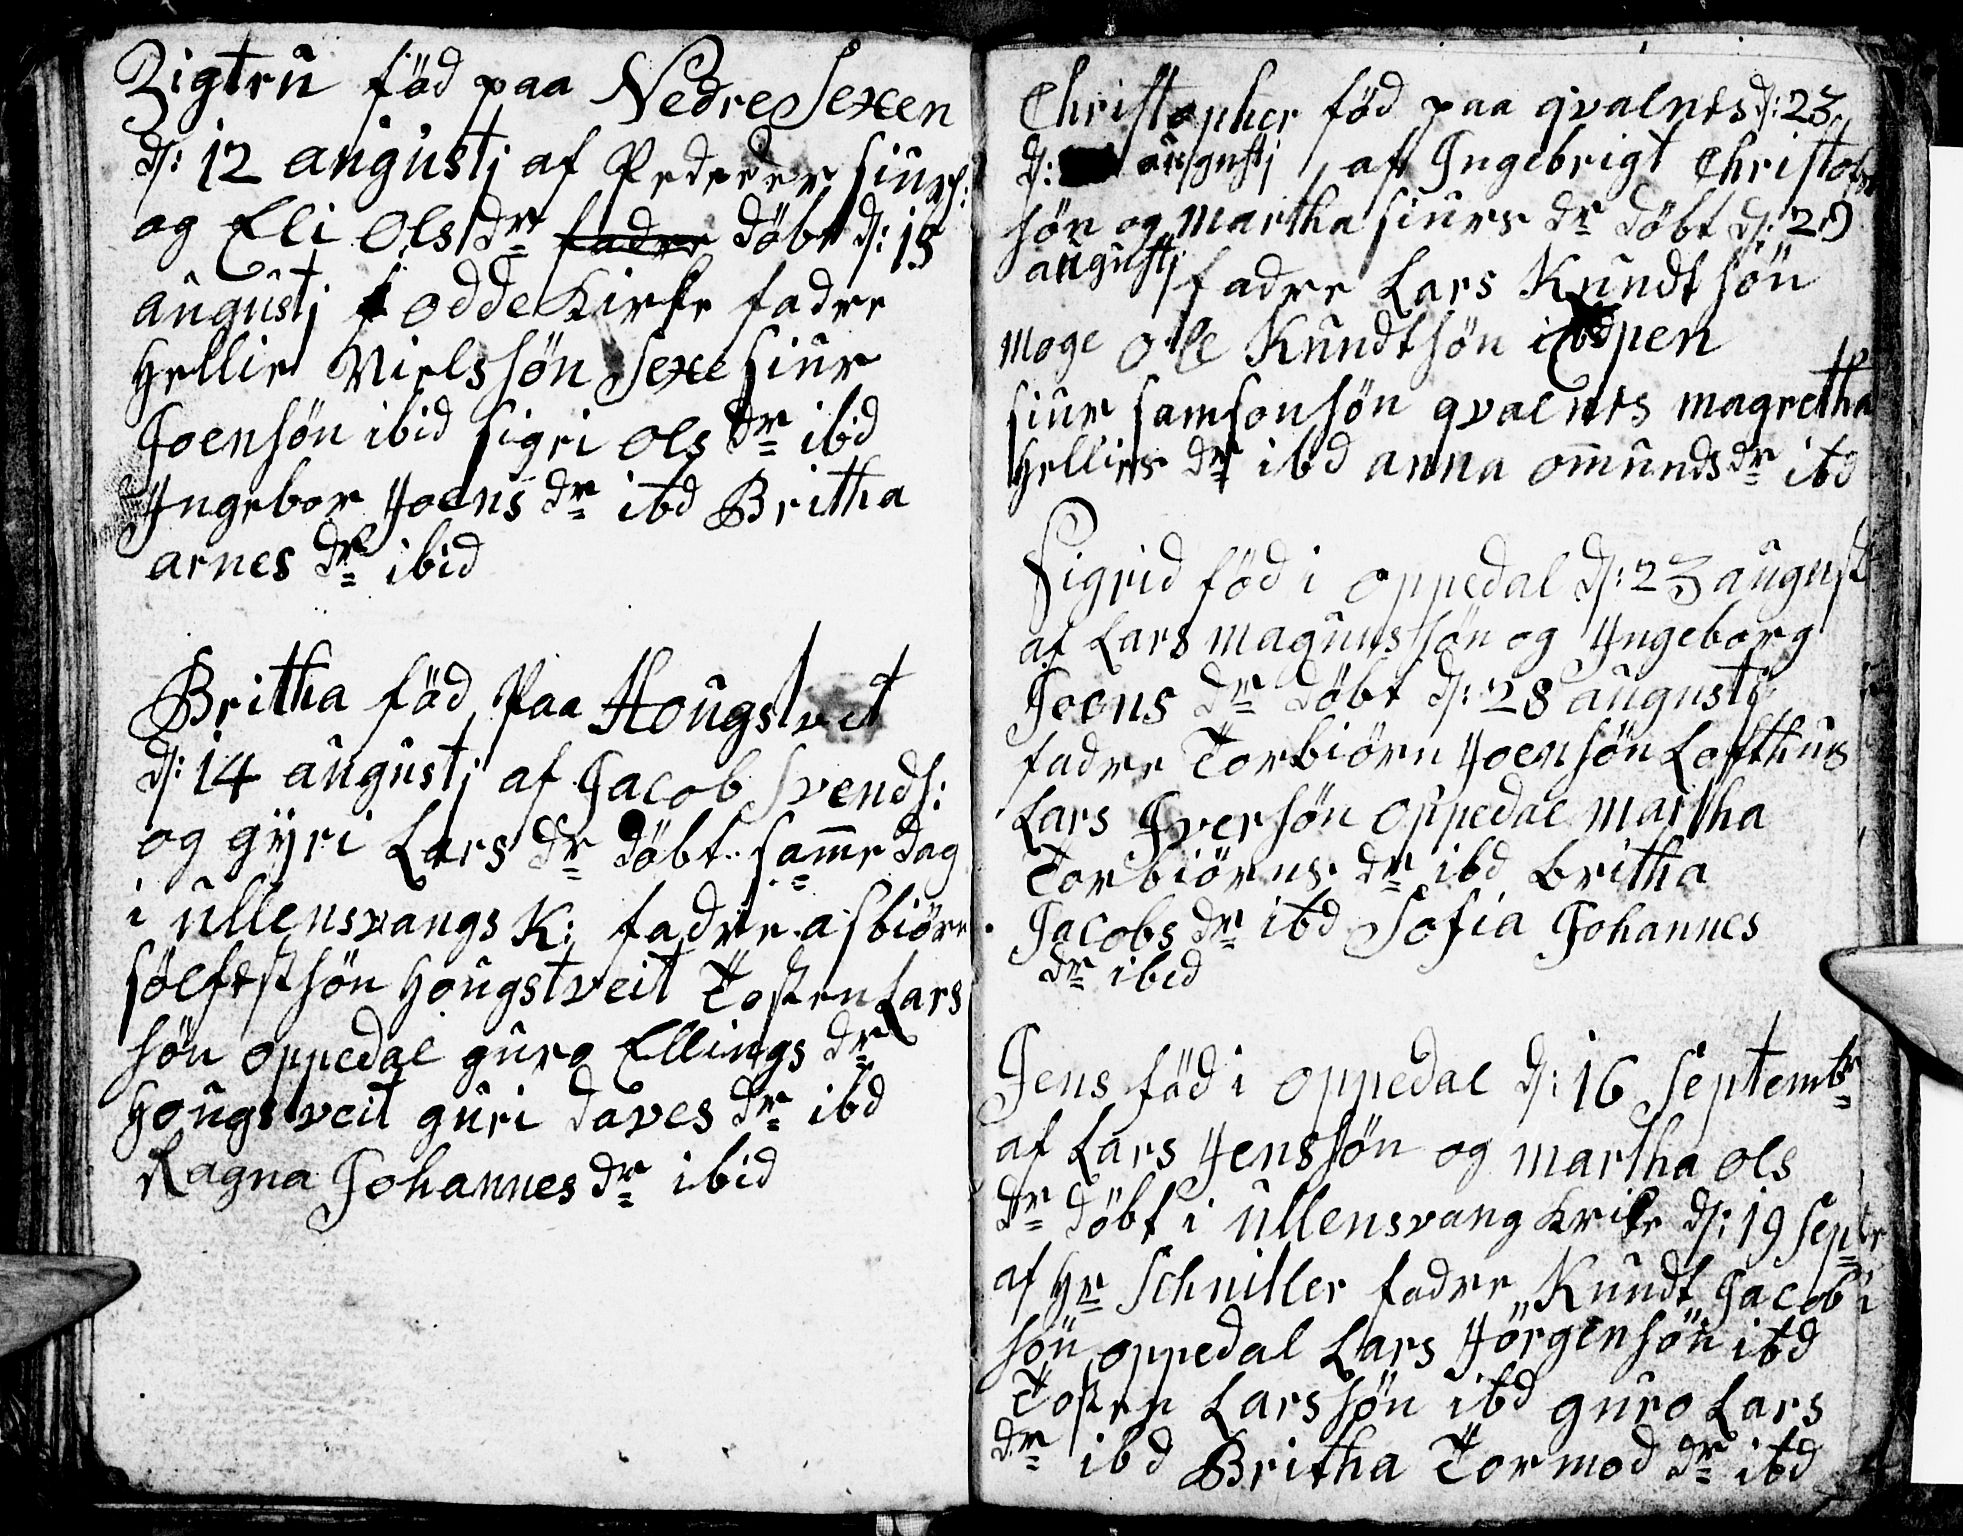 Zigtru föd paa Nedre Sexen
d: 12 augustj af Pededer Siurs:
og Eli Ols dr fadre döbt d: 15
augustj i odde Kirke fadre
Hellie Nielssön Sexe Siur
Joensön ibid Sigri Ols dr ibid
Ingebor Joens dr ibd Britha
arnes dr ibid
Britha föd Paa Hougstvet
d: 14 augustj af Jacob Svends:
og gÿri Lars dr döbt samme dag
i ullensvangs K: fadre asbiörn
sölfestsön Hougstveit Tosten Lars
sön oppedal guro Ellings dr
Hougstveit guri daves dr ibd
Ragna Johannes dr ibid
Christopher föd paa qvalnes d: 23
d: augustj af Ingebrigt Christoher
sön og Martha Siurs dr döbt d: 29
augustj fadre Lars Kundtsön
Moge Ole Kundtsön Espen
Siur Samsonsön qvalnes magretha
Hellies dr ibd anna omunds dr ibd
Sigrid föd i oppedal d: 23 august
af Lars magnussön og Ingeborg
Joens dr döbt d: 28 augustj
fadre Torbiörn Joensön Lofthus
Lars Iversön oppedal Martha
Torbiörns dr ibd britha
Jacobs dr ibd Sofia Johannes
dr ibid
Jens föd i oppedal d: 16 Septembr
af Lars Jenssön og Martha ols
dr döbt i ullensvang Krike d: 19 Septr
af Hr Schnitler fadre Kundt Jacob
sön oppedal Lars Jörgensön ibd
Tosten Larssön ibd guro Lars
dr ibd Britha Tormod dr ibd